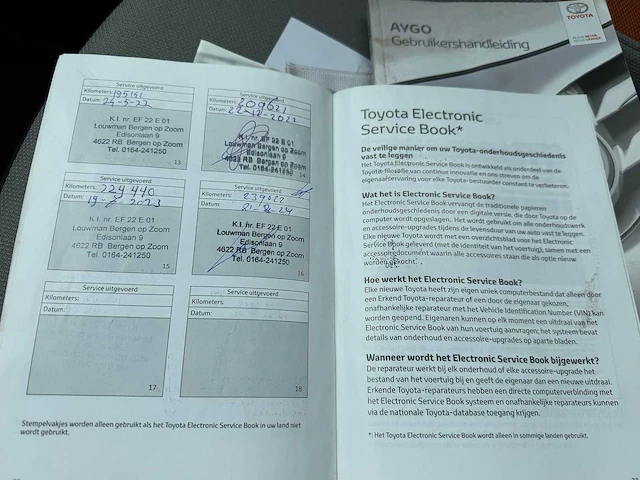 AYGO
Gebruikershandleiding
TOYOTA
Service uitgevoerd
Kilometers: 195151
Datum: 24-5-22
K.I. nr. EF 22 E 01
Louwman Bergen op Zoom
Edisonlaan 9
4622 RB Bergen op Zoom
Tel. 0164-241250
13
Service uitgevoerd
Kilometers: 209621
Datum: 22-12-2022
K.I. nr. EF 22 E 01
Louwman Bergen op Zoom
Edisonlaan 9
4622 RB Bergen op Zoom
Tel. 0164-241250
14
Service uitgevoerd
Kilometers: 224 440
Datum: 2023
K.I. nr. EF 22 E 01
Louwman Bergen op Zoom
Edisonlaan 9
4622 RB Bergen op Zoom
Tel. 0164-241250
15
Service uitgevoerd
Kilometers:
Datum:
K.I. nr. EF 22 E 01
Louwman Bergen op Zoom
Edisonlaan 9
4622 RB Bergen op Zoom
Tel. 0164-241250
16
Service uitgevoerd
Kilometers:
Datum:
17
Service uitgevoerd
Kilometers:
Datum:
18
Stempelvakjes worden alleen gebruikt als het Toyota Electronic Service Book in uw land niet
wordt gebruikt.
Toyota Electronic
Service Book*
De veilige manier om uw Toyota-onderhoudsgeschiedenis
vast te leggen
Het Toyota Electronic Service Book is ontwikkeld als onderdeel van de
Toyota-filosofie van continue innovatie en ons streven om de
eigenaarservaring voor elke Toyota-bestuurder constant te verbeteren.
Wat het is Electronic Service Book?
Het Electronic Service Book vervangt de traditionele papieren
onderhoudsgeschiedenis door een digitale versie, die door Toyota op de
computer wordt opgeslagen. Het wordt gebruikt om alle onderhoudswerk
en accessoire-upgrades tijdens de levensduur van uw auto vast te leggen.
Elke nieuwe Toyota wordt met een overzichtsblad voor het Electronic
Service Book geleverd (met de identiteit van het voertuig), samen met een
accessoiredocument waarin alle accessoires staan die als optie nieuw
worden gekocht.
Hoe werkt het Electronic Service Book?
Elke nieuwe Toyota heeft zijn eigen uniek computerbestand dat alleen door
een Erkend Toyota-reparateur of een door de eigenaar gekozen,
onafhankelijke reparateur met het Vehicle Identification Number (VIN) kan
worden geopend. Eigenaren kunnen op elk moment een uitdraai van het
Electronic Service Book van hun voertuig aanvragen; het systeem bevat
details van onderhoud en accessoire-upgrades op aparte bladen.
Wanneer wordt het Electronic Service Book bijgewerkt?
De reparateur werkt bij elk onderhoud of elke accessoire-upgrade het
bestand van het voertuig bij en geeft de eigenaar dan een nieuwe uitdraai.
Erkende Toyota-reparateurs hebben een directe computerverbinding met
het Electronic Service Book systeem en onafhankelijke reparateurs kunnen
via de nationale Toyota-database toegang krijgen.
*: Het Toyota Electronic Service Book wordt alleen in sommige landen gebruikt.